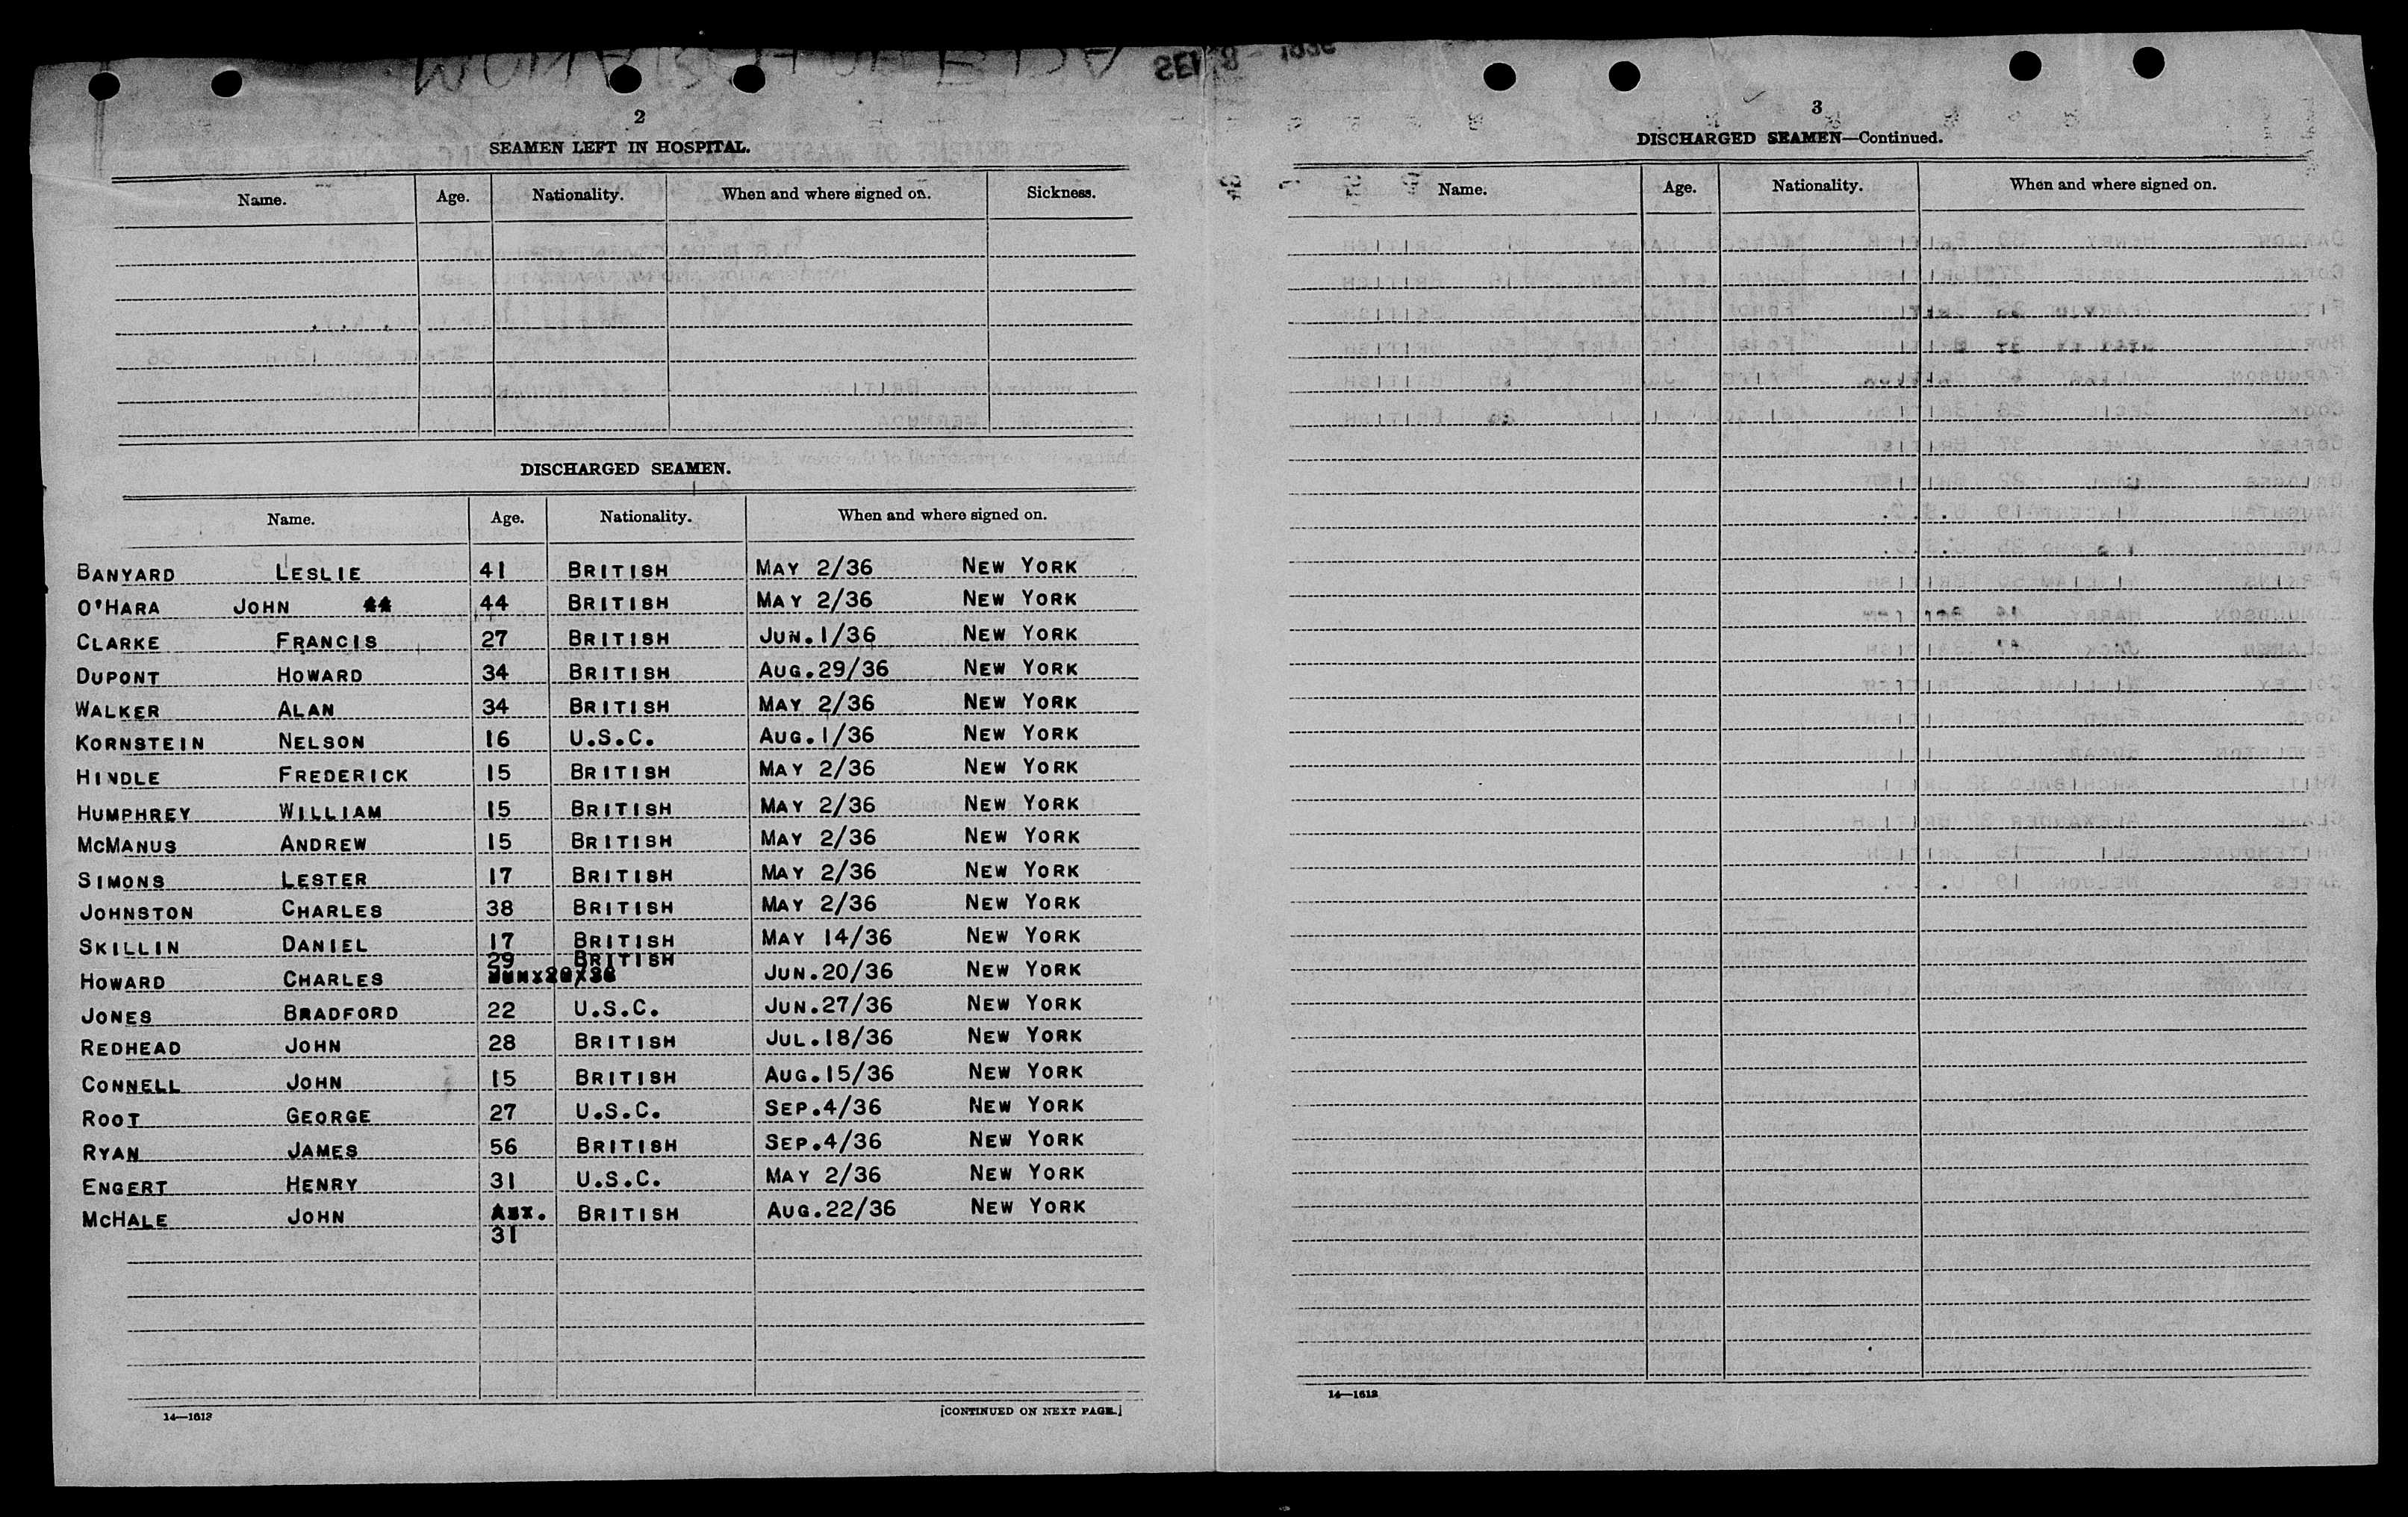 MONARCH OF BDA
SEP 8 - 1936
2
SEAMEN LEFT IN HOSPITAL.
Name. Age. Nationality. When and where signed on. Sickness.
DISCHARGED SEAMEN.
Name. Age. Nationality. When and where signed on.
BANYARD LESLIE 41 BRITISH MAY 2/36 NEW YORK
O'HARA JOHN 44 44 BRITISH MAY 2/36 NEW YORK
CLARKE FRANCIS 27 BRITISH JUN.1/36 NEW YORK
DUPONT HOWARD 34 BRITISH AUG.29/36 NEW YORK
WALKER ALAN 34 BRITISH MAY 2/36 NEW YORK
KORNSTEIN NELSON 16 U.S.C. AUG.1/36 NEW YORK
HINDLE FREDERICK 15 BRITISH MAY 2/36 NEW YORK
HUMPHREY WILLIAM 15 BRITISH MAY 2/36 NEW YORK
MCMANUS ANDREW 15 BRITISH MAY 2/36 NEW YORK
SIMONS LESTER 17 BRITISH MAY 2/36 NEW YORK
JOHNSTON CHARLES 38 BRITISH MAY 2/36 NEW YORK
SKILLIN DANIEL 17 BRITISH MAY 14/36 NEW YORK
29 BRITISH
HOWARD CHARLES JUN.20/36 NEW YORK
JONES BRADFORD 22 U.S.C. JUN.27/36 NEW YORK
REDHEAD JOHN 28 BRITISH JUL.18/36 NEW YORK
CONNELL JOHN 15 BRITISH AUG.15/36 NEW YORK
ROOT GEORGE 27 U.S.C. SEP.4/36 NEW YORK
RYAN JAMES 56 BRITISH SEP.4/36 NEW YORK
ENGERT HENRY 31 U.S.C. MAY 2/36 NEW YORK
MCHALE JOHN BRITISH AUG.22/36 NEW YORK
31
14—1613
[CONTINUED ON NEXT PAGE.]
3
DISCHARGED SEAMEN—Continued.
Name. Age. Nationality. When and where signed on.
14—1613